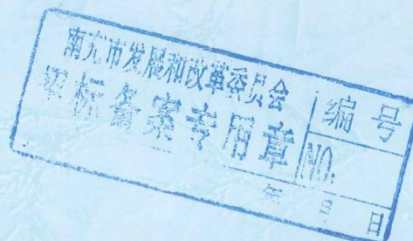 南充市发展和改革委员会
招标备案专用章
编号
NO.
年 月 日